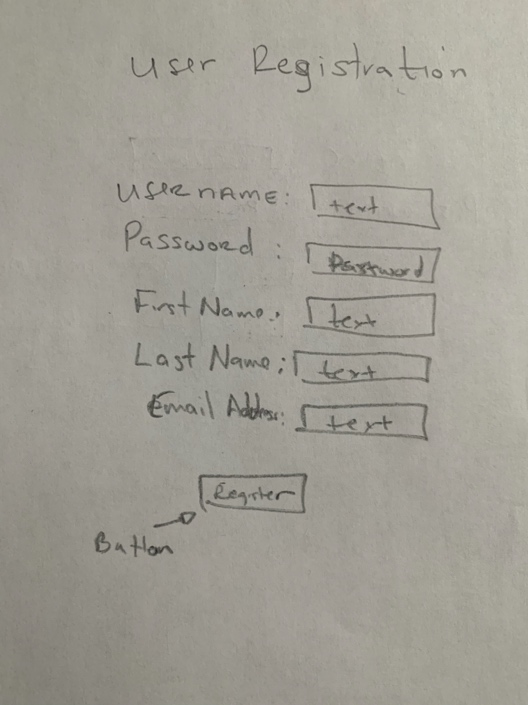 User Registration
UserNAME: text
Password : Password
First Name: text
Last Name: text
Email Address: text
Register
Button